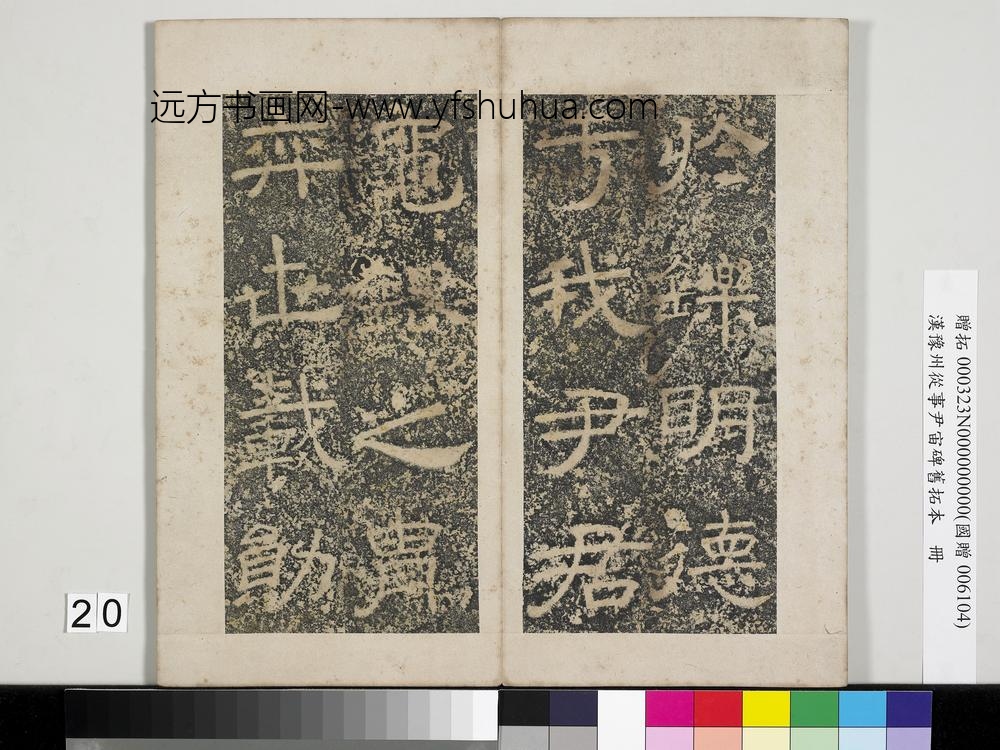 远方书画网-www.yfshuhua.com
於鑠明德
于我尹君
龜銀之胄
弈世載勛
20
贈拓 000323N000000000(國贈 006104)
漢豫州從事尹宙碑舊拓本 冊